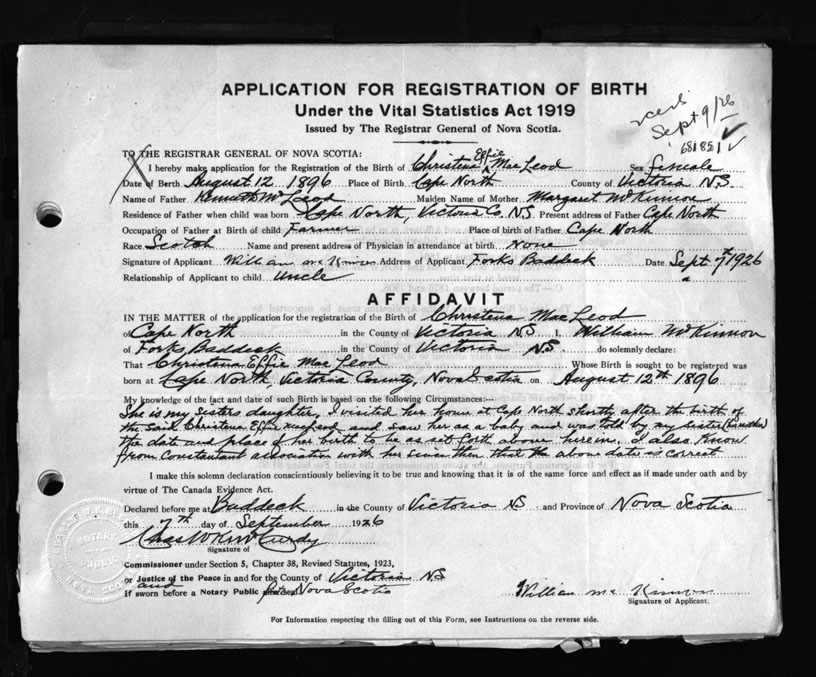 APPLICATION FOR REGISTRATION OF BIRTH
Under the Vital Statistics Act 1919
Issued by The Registrar General of Nova Scotia.
Sept 9/26
68185
TO THE REGISTRAR GENERAL OF NOVA SCOTIA:
I hereby make application for the Registration of the Birth of Christena Effie MacLeod Sex female
Date of Berth August 12 1896 Place of Birth Cape North County of Victoria N.S.
Name of Father Kenneth McLeod Maiden Name of Mother Margaret McKinnon
Residence of Father when child was born Cape North, Victoria Co. N.S. Present address of Father Cape North
Occupation of Father at Birth of child Farmer Place of birth of Father Cape North
Race Scotch Name and present address of Physician in attendance at birth None
Signature of Applicant William Mc Kinnon Address of Applicant Forks Baddeck Date Sept 7th 1926
Relationship of Applicant to child Uncle
AFFIDAVIT
IN THE MATTER of the application for the registration of the Birth of Christena MacLeod
of Cape North in the County of Victoria NS I, William McKinnon
of Forks Baddeck in the County of Victoria NS. do solemnly declare:
That Christena Effie MacLeod Whose Birth is sought to be registered was
born at Cape North, Victoria County, Nova Scotia on August 12th 1896
My knowledge of the fact and date of such Birth is based on the following Circumstances:—
She is my sisters daughter, I visited her home at Cape North shortly after the birth of
the said Christena Effie MacLeod and saw her as a baby and was told by my sister (her mother)
the date and place of her birth to be as set forth above herein. I also know
from constantant association with her since then that the above date is correct
I make this solemn declaration conscientiously believing it to be true and knowing that it is of the same force and effect as if made under oath and by
virtue of The Canada Evidence Act.
Declared before me at Baddeck in the County of Victoria NS and Province of Nova Scotia
this 7th day of September 1926
Signature of
Commissioner under Section 5, Chapter 38, Revised Statutes, 1923,
or Justice of the Peace in and for the County of Victoria NS
and
If sworn before a Notary Public Nova Scotia
William Mc Kinnon
Signature of Applicant.
For Information respecting the filling out of this Form, see Instructions on the reverse side.